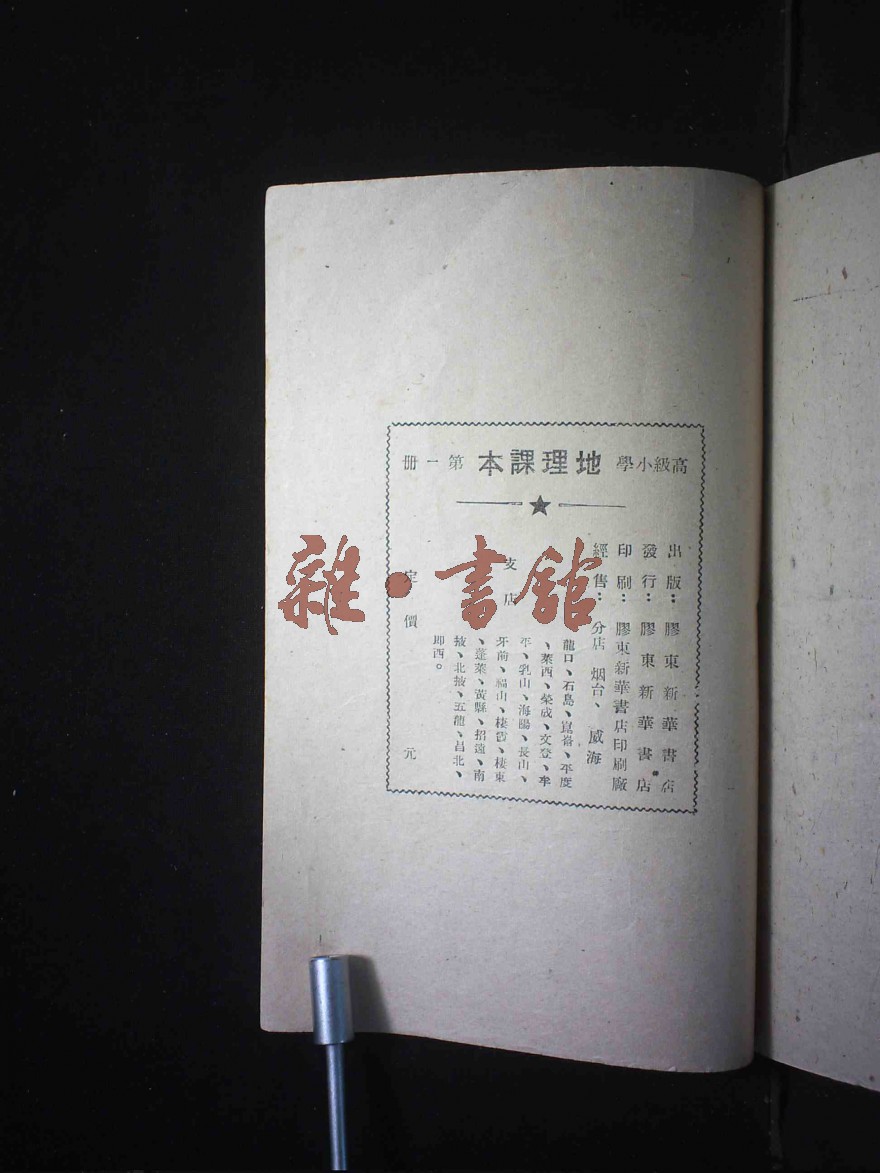 高級小學 地理課本 第一册
出版：膠東新華書店
發行：膠東新華書店
印刷：膠東新華書店印刷廠
經售：分店 烟台、威海
支店
龍口、石島、崑嵛、平度
、萊西、榮成、文登、牟
平、乳山、海陽、長山、
牙前、福山、棲霞、棲東
、蓬萊、黃縣、招遠、南
掖、北掖、五龍、昌北、
即西。
定價 元
雜·書館